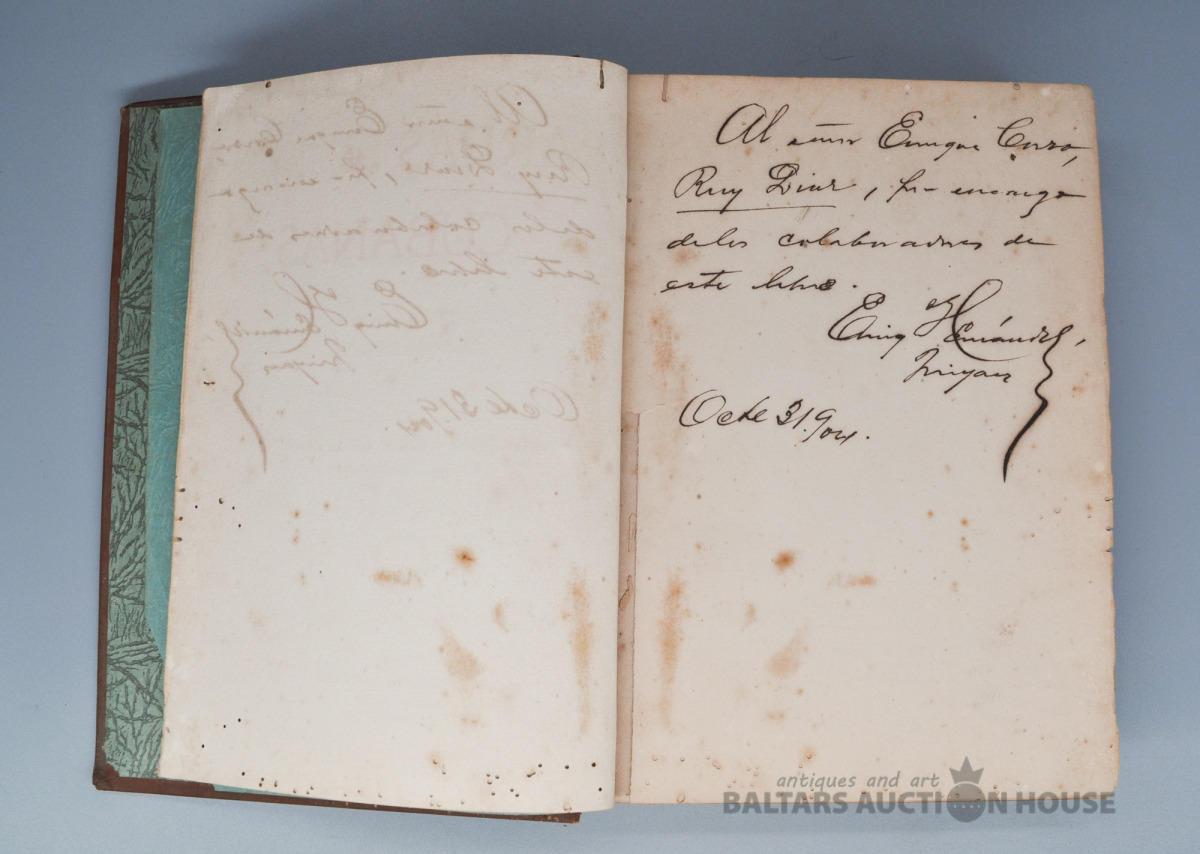 Al señor Enrique Corzo,
Ruy Diaz, por encargo
de los colaboradores de
este libro.
Enriq Hernández,
Octe 31. 904.
antiques and art
BALTARS AUCTION HOUSE